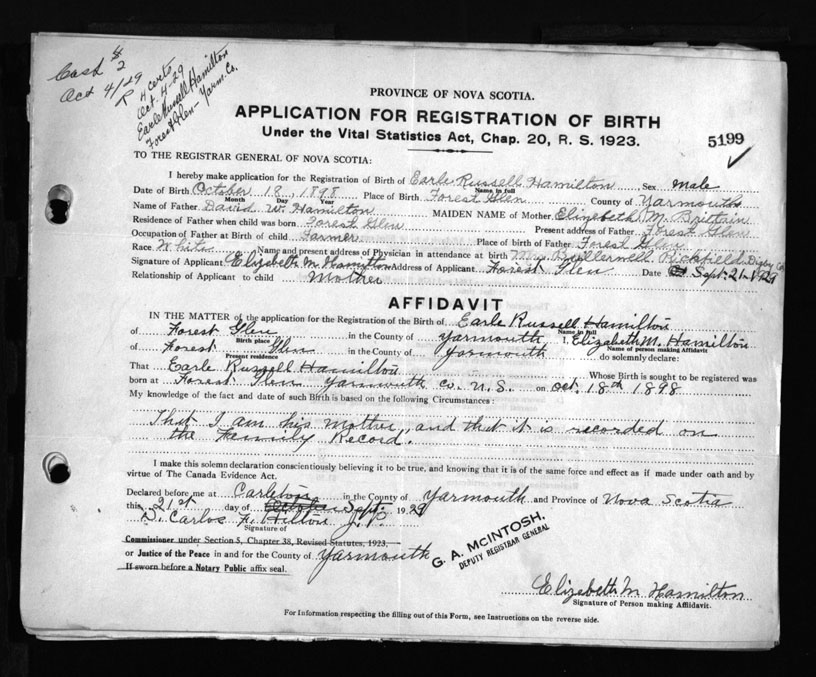 Cash $2
Oct 4/29
R
4 Certs
Oct 4-29
Earle Russell Hamilton
Forest Glen - Yarm. Co.
PROVINCE OF NOVA SCOTIA.
APPLICATION FOR REGISTRATION OF BIRTH
Under the Vital Statistics Act, Chap. 20, R. S. 1923.
5199
TO THE REGISTRAR GENERAL OF NOVA SCOTIA:
I hereby make application for the Registration of Birth of Earle Russell Hamilton Sex male
Name in full
Date of Birth October 18, 1898 Place of Birth Forest Glen County of Yarmouth
Month Day Year
Name of Father David W. Hamilton MAIDEN NAME of Mother Elizabeth M. Brittain
Residence of Father when child was born Forest Glen Present address of Father Forest Glen
Occupation of Father at Birth of child Farmer Place of birth of Father Forest Glen
Race White Name and present address of Physician in attendance at birth Mrs Rickfield Digby Co
Signature of Applicant Elizabeth M Hamilton Address of Applicant Forest Glen Date Sept. 21-1929
Relationship of Applicant to child Mother
AFFIDAVIT
IN THE MATTER of the application for the Registration of the Birth of Earle Russell Hamilton
Name in full
of Forest Glen in the County of Yarmouth I, Elizabeth M. Hamilton
Birth place Name of person making Affidavit
of Forest Glen in the County of Yarmouth do solemnly declare:
Present residence
That Earle Russell Hamilton Whose Birth is sought to be registered was
born at Forest Glen Yarmouth Co. N.S. on Oct. 18th 1898
My knowledge of the fact and date of such Birth is based on the following Circumstances:
That I am his mother, and that it is recorded on
the Family Record.
I make this solemn declaration conscientiously believing it to be true, and knowing that it is of the same force and effect as if made under oath and by
virtue of The Canada Evidence Act.
Declared before me at Carleton in the County of Yarmouth and Province of Nova Scotia
this 21st day of October Sept. 1929
S. Carlos F. Hilton J.P.
Signature of
Commissioner under Section 5, Chapter 38, Revised Statutes, 1923,
or Justice of the Peace in and for the County of Yarmouth
If sworn before a Notary Public affix seal.
G. A. McINTOSH,
DEPUTY REGISTRAR GENERAL
Elizabeth M Hamilton
Signature of Person making Affidavit.
For Information respecting the filling out of this Form, see Instructions on the reverse side.